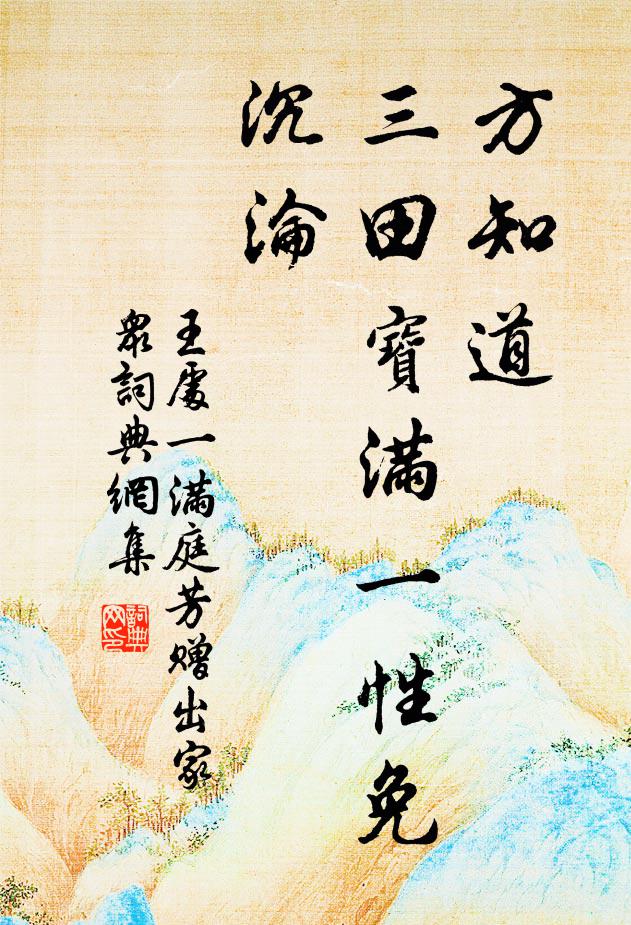 方知道
三田寶滿一性免
沉淪
王處一滿庭芳赠出家
眾詞典網集
詞典
网印